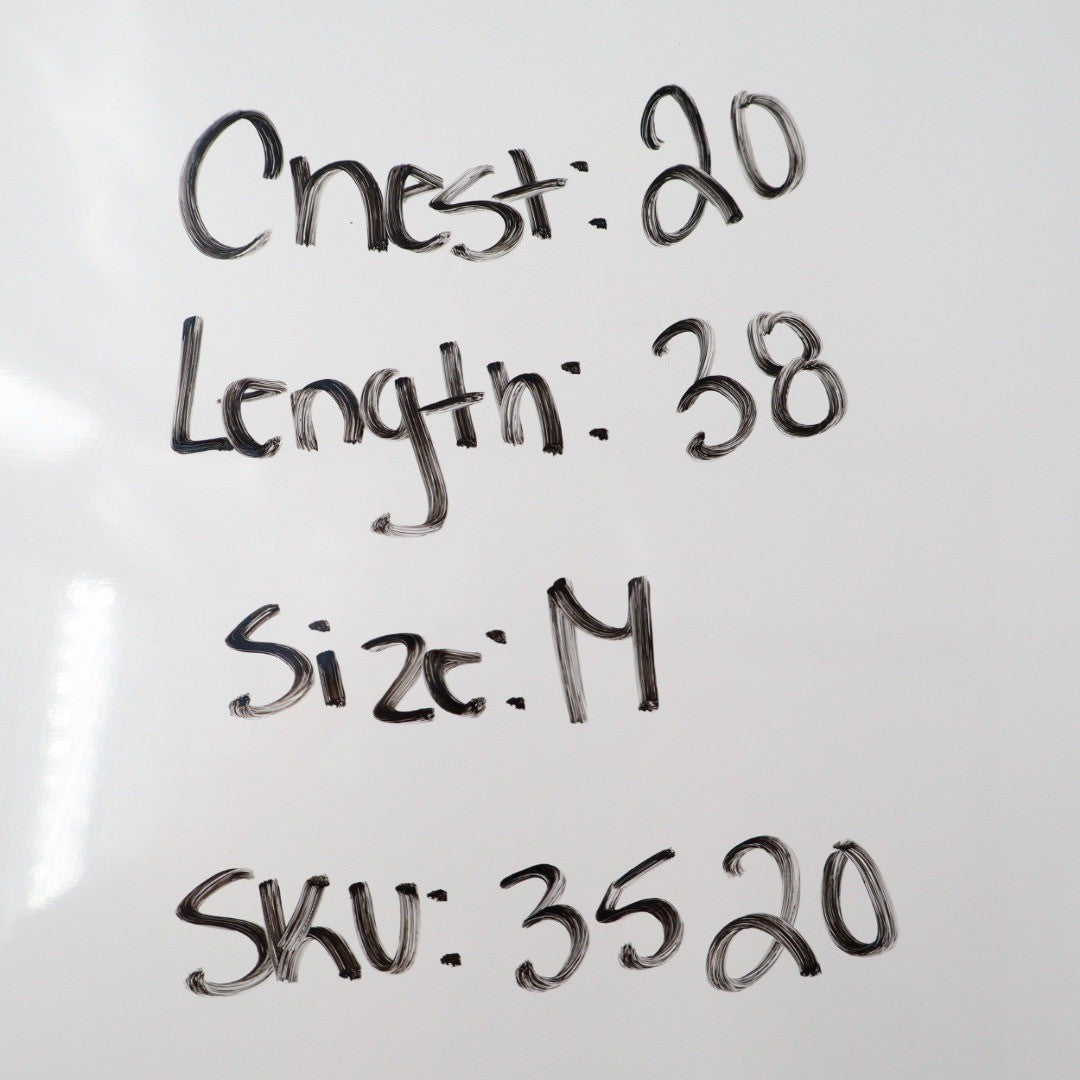 Chest: 20
Length: 38
Size: M
SKU: 3520